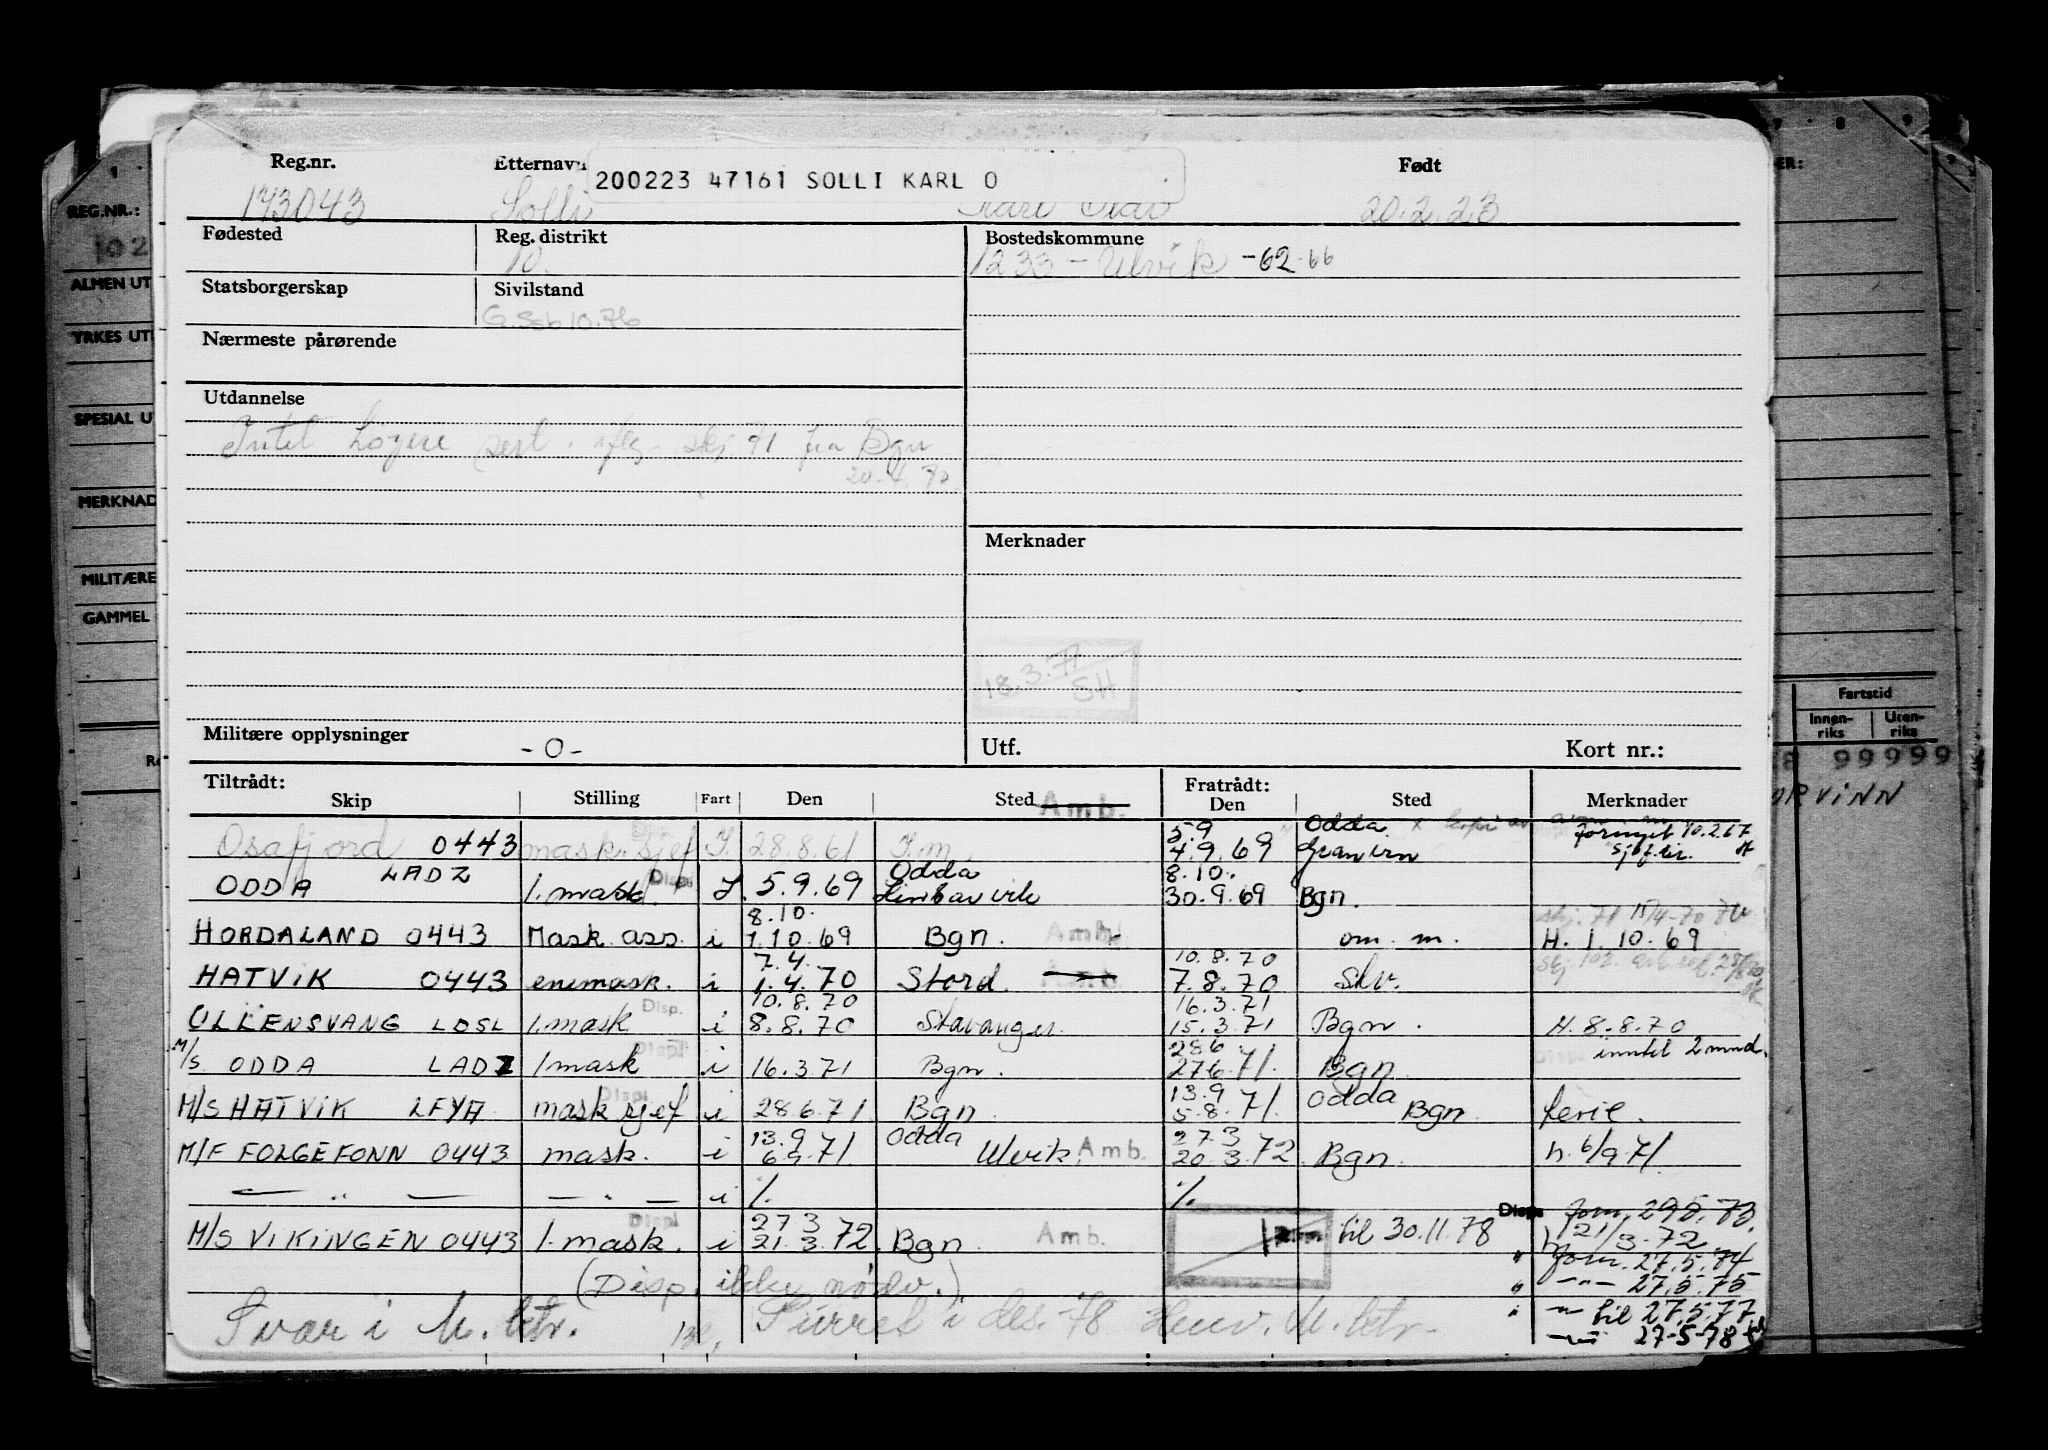 Reg.nr. Etternavn Født
200223 47161 SOLLI KARL O
143043 Solli Karl Olav 20.2.23
Fødested Reg. distrikt Bostedskommune
10. 1233 - Ulvik - 62-66
Statsborgerskap Sivilstand
Nærmeste pårørende
Utdannelse
Intet høyere sert. iflg. skj. 71 fra Bgn
20.4.70
Merknader
18.3.71
SH
Militære opplysninger -0- Utf. Kort nr.:
Tiltrådt: Fratrådt:
Skip Stilling Fart Den Sted Amb. Den Sted Merknader
5.9 Odda Fornyet 10.2.67
Osafjord 0443 mask.sjef I. 28.8.61 F.m. 4.9.69 Granvin
LADZ Displ Odda 8.10.
ODDA 1.mask. I. 5.9.69 30.9.69 Bgn.
8.10. skj. 71 15/4-70
HORDALAND 0443 Mask. ass. i 1.10.69 Bgn. Amb. om. m. H. 1.10.69
7.4. 10.8.70
HATVIK 0443 enemask. i 1.4.70 Stord. Amb. 7.8.70 Skv.
Disp. 10.8.70 16.3.71
ULLENSVANG LDSL 1.mask i 8.8.70 Stavanger. 15.3.71 Bgn. H. 8.8.70
Displ 28.6 inntil 2 mnd.
M/S ODDA LADZ 1mask i 16.3.71 Bgn. 27.6.71. Bgn.
Displ 13.9 Odda
M/S HATVIK LFYA mask sjef i 28.6.71 Bgn. 5.8.71. Bgn. ferie.
13.9 Odda 27.3
M/F FOLGEFONN 0443 mask. i 6.9.71. Ulvik. Amb. 20.3.72 Bgn. h. 6/9 71.
— " — — " — i % %
Displ 27.3 Disp. forn. 29.5.73.
M/S VIKINGEN 0443 1.mask. i 21.3.72. Bgn. Amb. til 30.11.78 h 21/3-72
" forn. 27.5.74
(Disp. ikke nødv.) " —"— 27.5.75
Svar i M. btr. Purret i des. 78 Henv. M. btr. " —" til 27.5.77
—"— 27-5-78
REG.NR.:
102
ALMEN UT
YRKES UT
SPESIAL U
MERKNAD
MILITÆRE
GAMMEL
7 8 9
ER:
Fartstid
Innen-
riks
Uten-
riks
99999